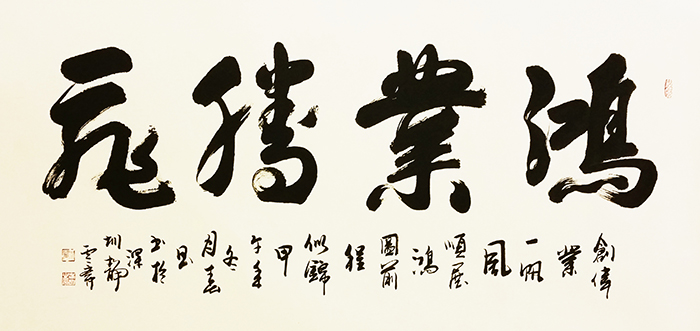 鴻業騰飛
創偉
業
一帆
風
順展
鴻
圖前
程
似錦
甲
午年
冬
月吉
旦
書於
深
圳靜
雲齋